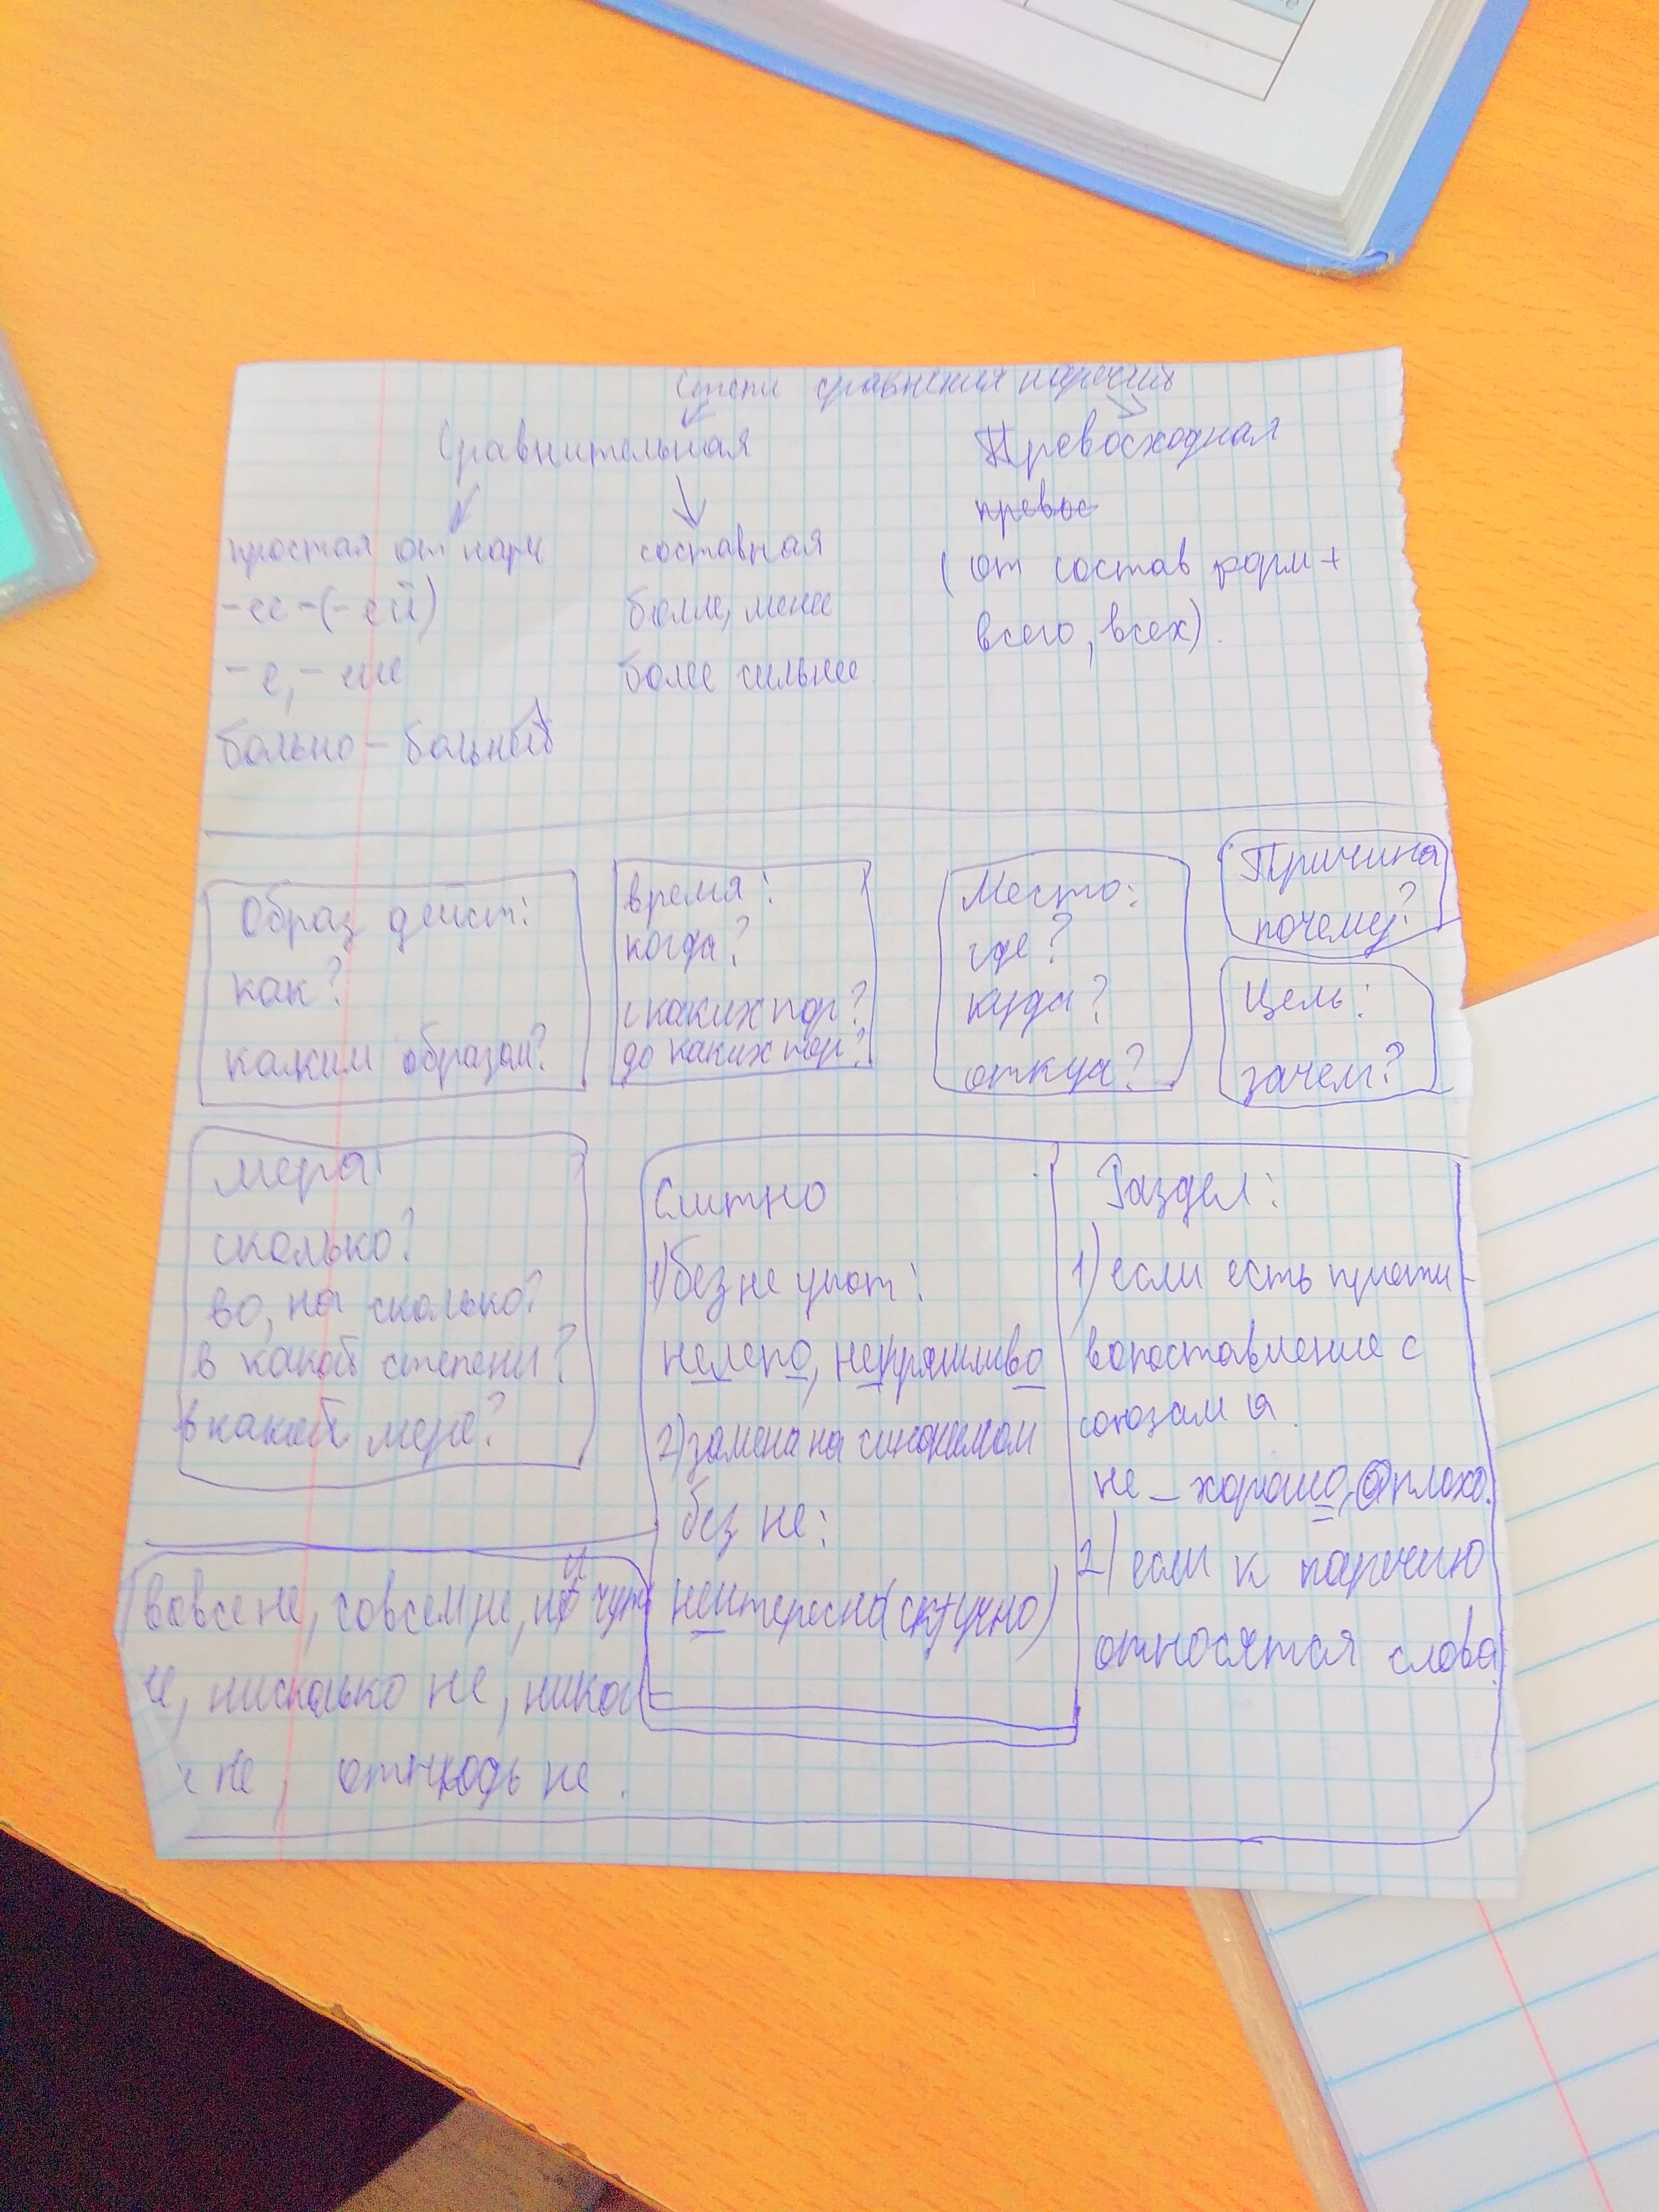 Степ сравнения наречий
Сравнительная
Превосходная
превос
простая от нареч
составная
(от состав форм +
-ее -(-ей)
более, менее
всего, всех).
-е, -ше
более сильнее
больно - больней
Образ дейст:
как?
каким образом?
время:
когда?
с каких пор?
до каких пор?
Место:
где?
куда?
откуа?
Причина
почему?
Цель:
зачем?
мера
сколько?
во, на сколько?
в какой степени?
в какой мере?
Слитно
1) без не упот:
нелепо, непряшливо
2) замена на синонимом
без не:
неитересно (скучно)
Раздел:
1) если есть проти-
вопоставление с
союзам а.
не - хорошо, а плохо.
2) если к наречию
относятся слова
вовсе не, совсем не, ни чуть
не, нисколько не, никог
не, отнюдь не.